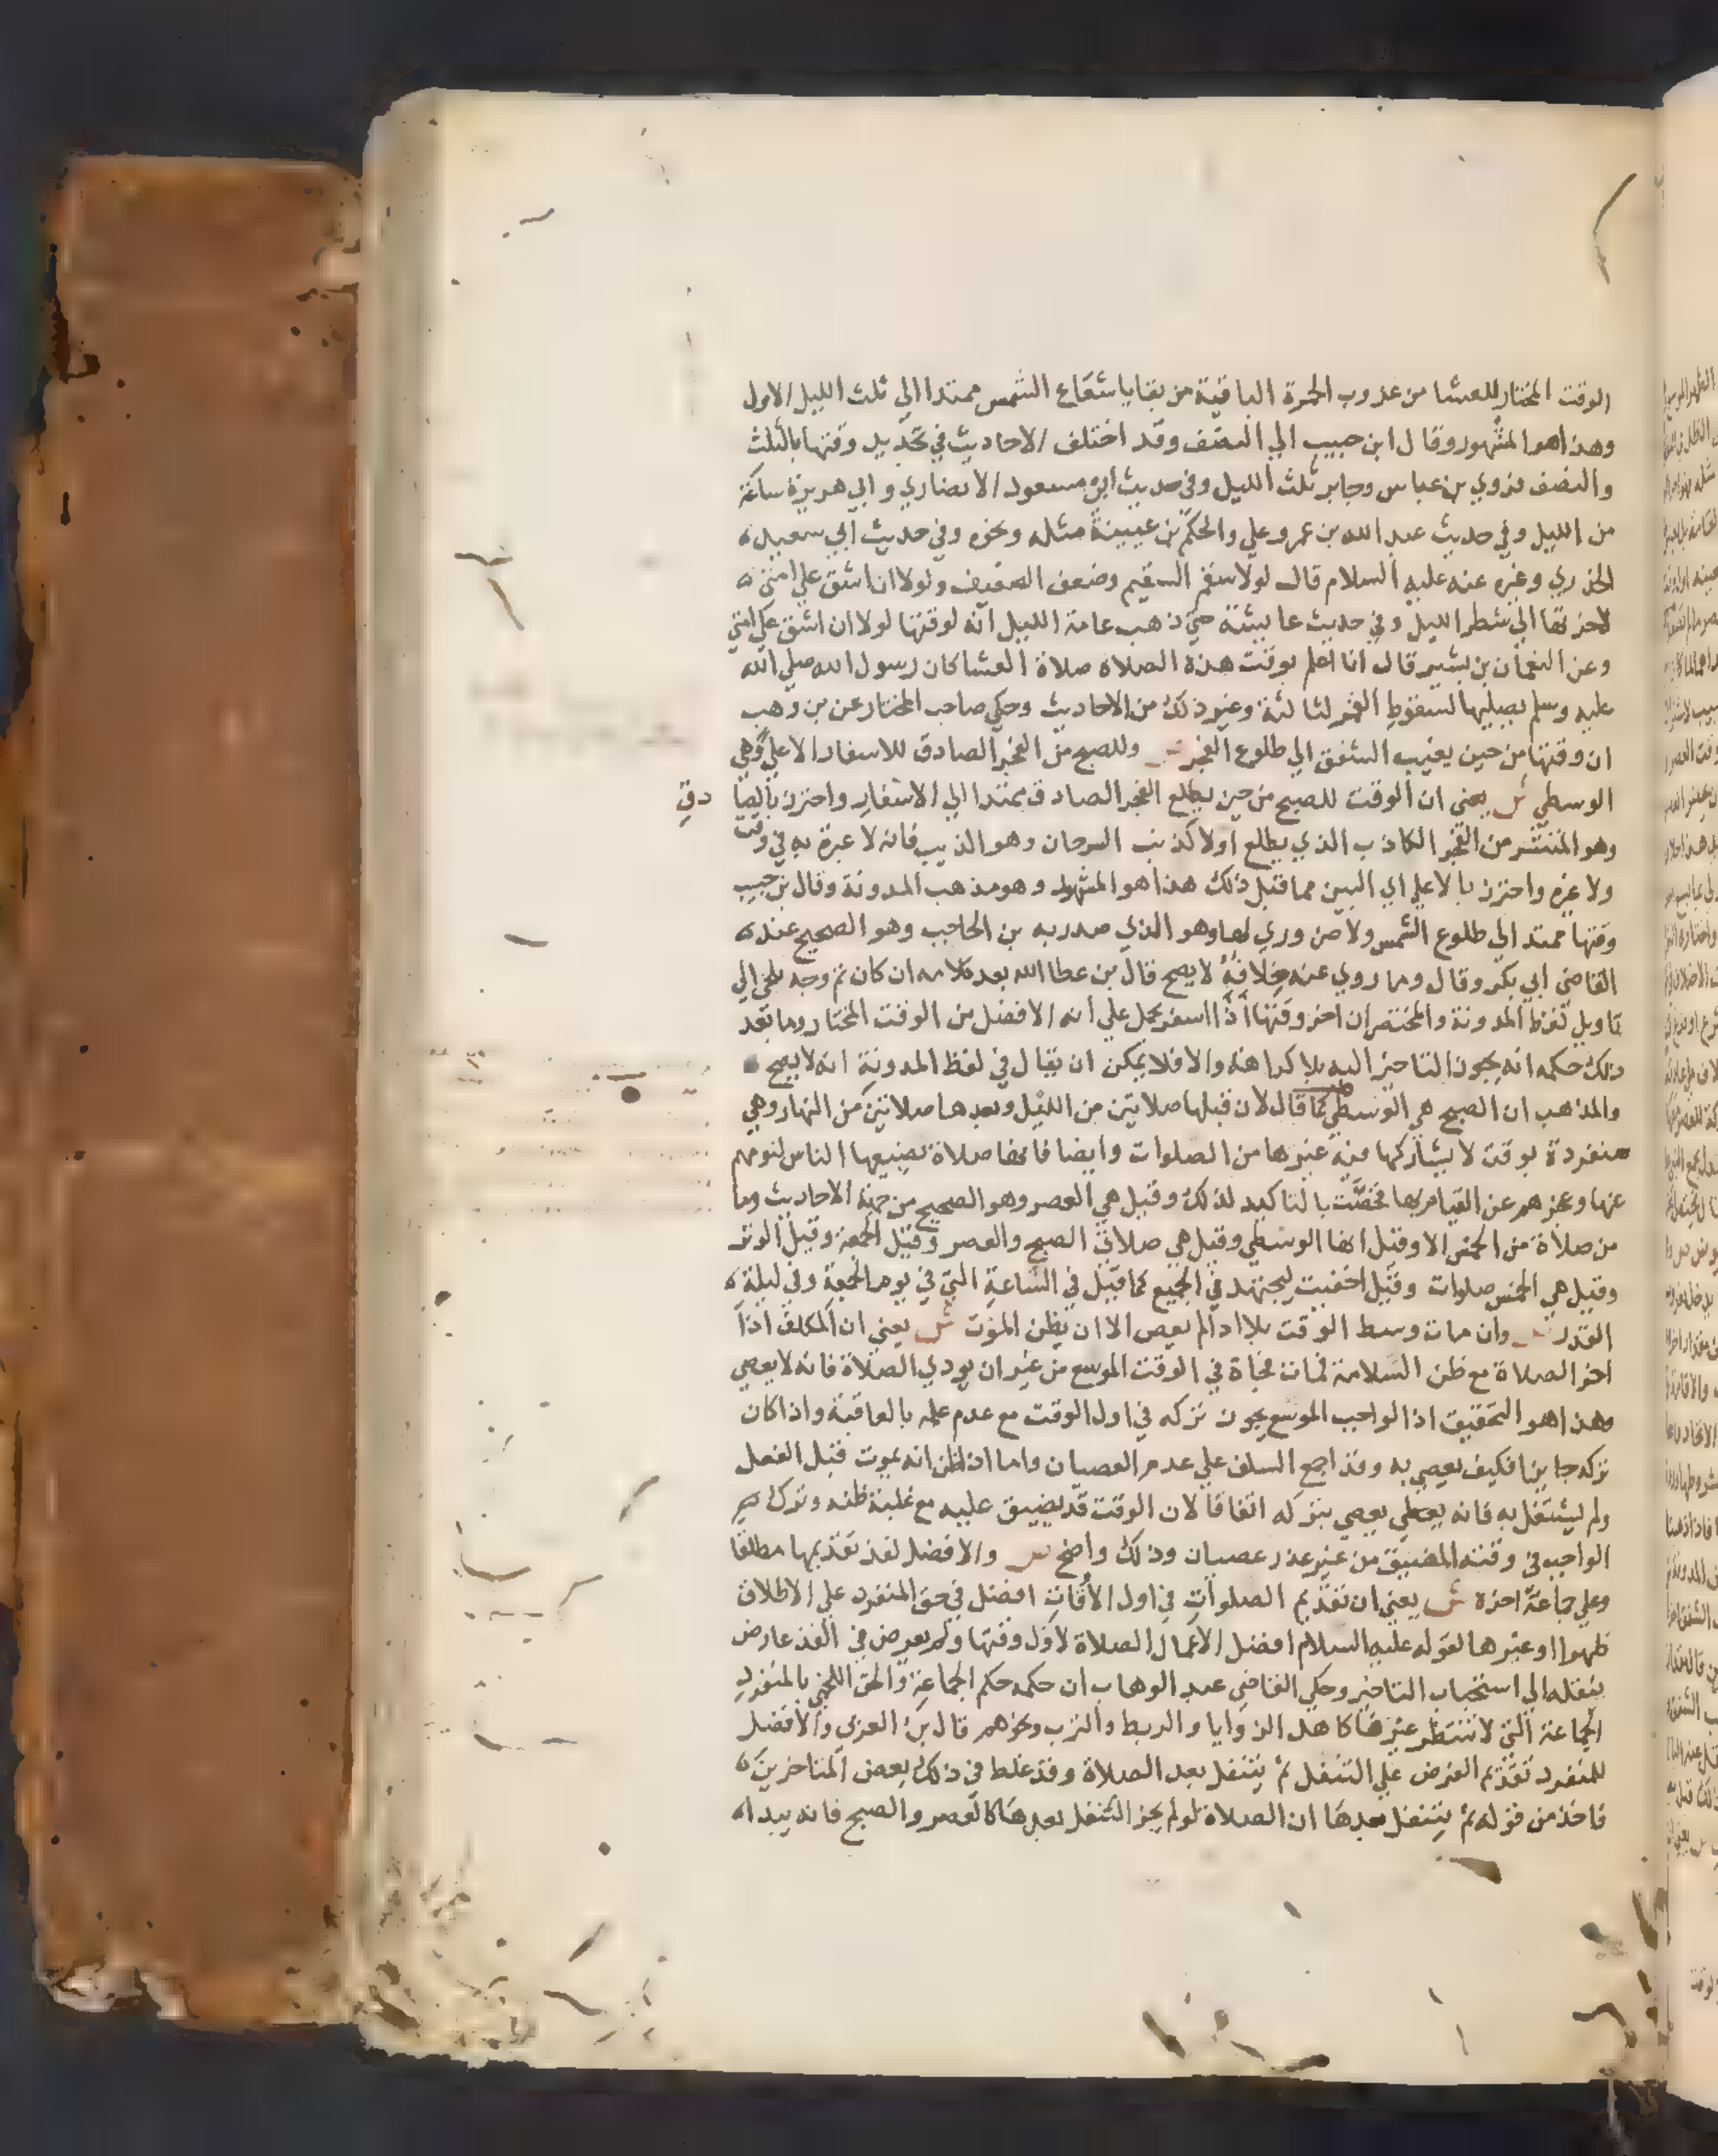 الوقت المختار للعشا من غروب الحمرة الباقية من بقايا شعاع الشمس ممتدا الي ثلث الليل الاول
وهذا هو المشهور وقال ابن حبيب الي النصف وقد اختلف الاحاديث في تحديد وقتها بالثلث
والنصف فروي بن عباس وجابر ثلث الليل وفي حديث ابي مسعود الانصاري و ابي هريرة ساعة
من الليل وفي حديث عبد الله بن عمرو علي والحكم بن عيينة مثله ونحوه وفي حديث ابي سعيد
الخدري وغيره عنه عليه السلام قال لولا سقم السقيم وضعف الضعيف ولولا ان اشق علي امتي
لاخرتها الي شطر الليل وفي حديث عايشة حتي ذهب عامة الليل انه لوقتها لولا ان اشق علي امتي
وعن النعمان بن بشير قال انا اعلم بوقت هذه الصلاه صلاة العشا كان رسول الله صلي الله
عليه وسلم يصليها لسقوط القمر لثالثة وغير ذلك من الاحاديث وحكي صاحب المختار عن بن وهب
ان وقتها من حين يغيب الشفق الي طلوع الفجر ص وللصبح من الفجر الصادق للاسفار الاعلي وهي
الوسطي ش يعني ان الوقت للصبح من حين يطلع الفجر الصادق ممتدا الي الاسفار واحترز بالصا دق
وهو المنتشر من الفجر الكاذب الذي يطلع اولا كذنب السرحان وهو الذيب فانه لا عبرة به في وقت
ولا غيره واحترز بالاعلي اي البين مما قبل ذلك هذا هو المشهور وهو مذهب المدونة وقال بن حبيب
وقتها ممتد الي طلوع الشمس ولا ضروري لها وهو الذي صدر به بن الحاجب وهو الصحيح عند
القاضي ابي بكر وقال وما روي عنه خلافه لا يصح قال بن عطا الله بعد كلامه ان كان ثم وجه يلجي الي
تاويل لفظ المدونة والمختصران اخر وقتها اذا اسفر يحمل علي انه الافضل من الوقت المختار وما بعد
ذلك حكمه انه يجوز التاخير اليه بلا كراهة والا فلا يمكن ان يقال في لفظ المدونة انه لا يصح
والمذهب ان الصبح هي الوسطي كما قال لان قبلها صلاتين من الليل وبعدها صلاتين من النهار وهي
منفردة بوقت لا يشاركها فيه غيرها من الصلوات وايضا فانها صلاة يضيعها الناس لنومهم
عنها وعجزهم عن القيام بها فخصت بالتاكيد لذلك وقيل هي العصر وهو الصحيح من جهة الاحاديث وما
من صلاة من الخمس الا وقيل انها الوسطي وقيل هي صلاتي الصبح والعصر وقيل الجمعة وقيل الوتر
وقيل هي الخمس صلوات وقيل اخفيت ليجتهد في الجميع كما قيل في الساعة التي في يوم الجمعة وفي ليلة
القدر ص وان مات وسط الوقت بلا ادا لم يعص الا ان يظن الموت ش يعني ان المكلف اذا
اخر الصلاة مع ظن السلامة فمات فجاة في الوقت الموسع من غير ان يودي الصلاة فانه لا يعصي
وهذا هو التحقيق اذ الواجب الموسع يجوز تركه في اول الوقت مع عدم علمه بالعاقبة واذا كان
تركه جايزا فكيف يعصي به وقد اجمع السلف علي عدم العصيان واما ان ظن انه يموت قبل الفعل
ولم يشتغل به فانه يعصي بتركه اتفاقا لان الوقت قد يضيق عليه مع غلبة ظنه وترك
الواجب في وقته المضيق من غير عذر عصيان وذلك واضح ص والافضل لفذ تقديمها مطلقا
وعلي جماعة اخره ش يعني ان تقديم الصلوات في اول الاوقات افضل في حق المنفرد علي الاطلاق
ظهرا او غيرها لقوله عليه السلام افضل الاعمال الصلاة لاول وقتها ولم يعرض في الفذ عارض
ينقله الي استحباب التاخير وحكي القاضي عبد الوهاب ان حكمه حكم الجماعة والحق اللخمي بالمنفرد
الجماعة التي لا تنتظر غيرها كاهل الزوايا والربط والترب ونحوهم قال بن العربي والافضل
للمنفرد تقديم الفرض علي التنفل ثم يتنفل بعد الصلاة وقد غلط في ذلك بعض المتاخرين
فاخذ من قوله ثم يتنفل بعدها ان الصلاة لو لم يجز التنفل بعدها كالعصر والصبح فانه يبدا